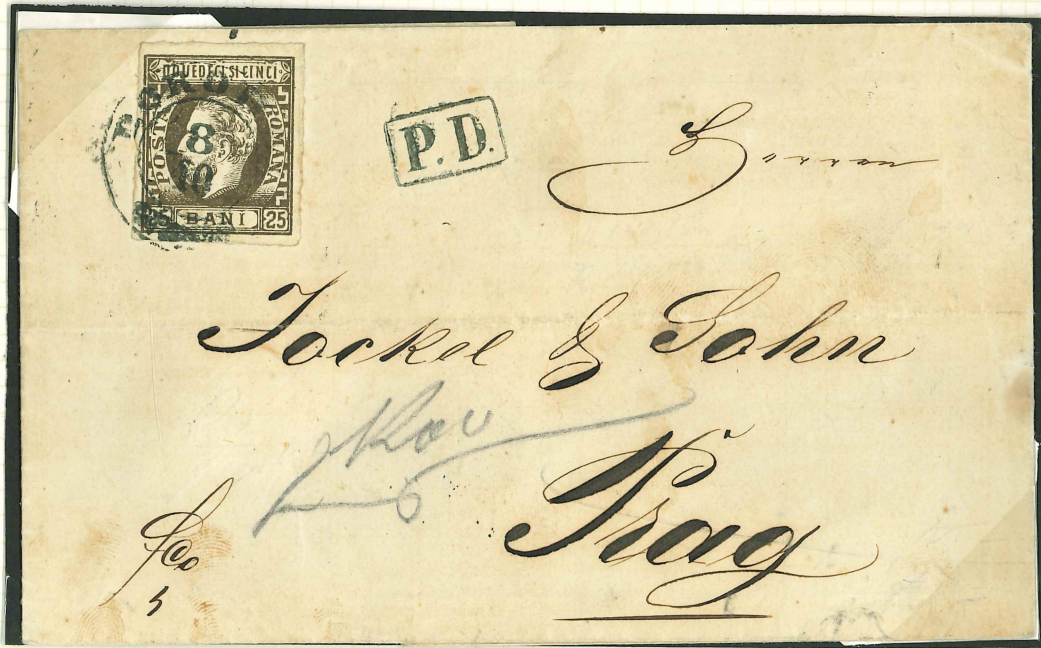 DOUEDECI SI CINCI
POSTA
ROMANA
8
10
25 BANI 25
P.D.
Herren
Jockel & Sohn
Prag
fco